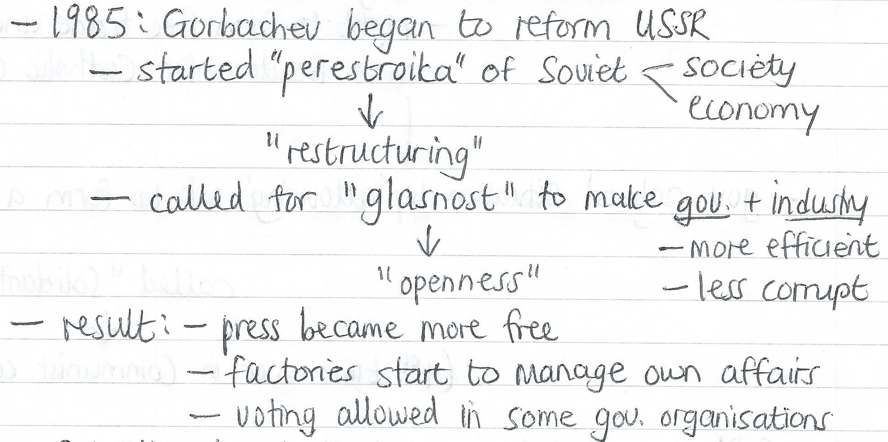 – 1985: Gorbachev began to reform USSR
– started "perestroika" of Soviet society
economy
"restructuring"
– called for "glasnost" to make gov. + industry
– more efficient
"openness" – less corrupt
– result: – press became more free
– factories start to manage own affairs
– voting allowed in some gov. organisations